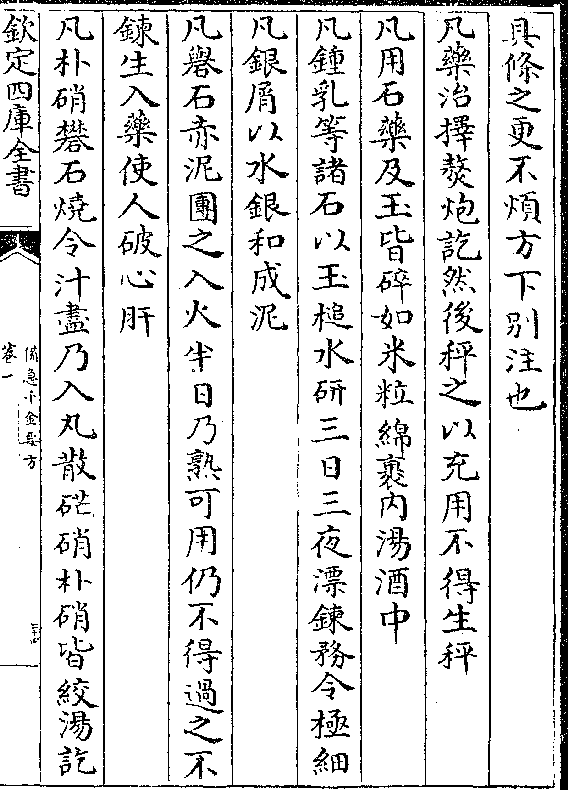 具條之更不煩方下別注也
凡藥治擇熬炮訖然後秤之以充用不得生秤
凡用石藥及玉皆碎如米粒綿裹内湯酒中
凡鍾乳等諸石以玉槌水研三日三夜漂鍊務令極細
凡銀屑以水銀和成泥
凡礜石赤泥團之入火半日乃熟可用仍不得過之不
鍊生入藥使人破心肝
凡朴硝礬石燒令汁盡乃入丸散芒硝朴硝皆絞湯訖
欽定四庫全書
備急千金要方
卷一